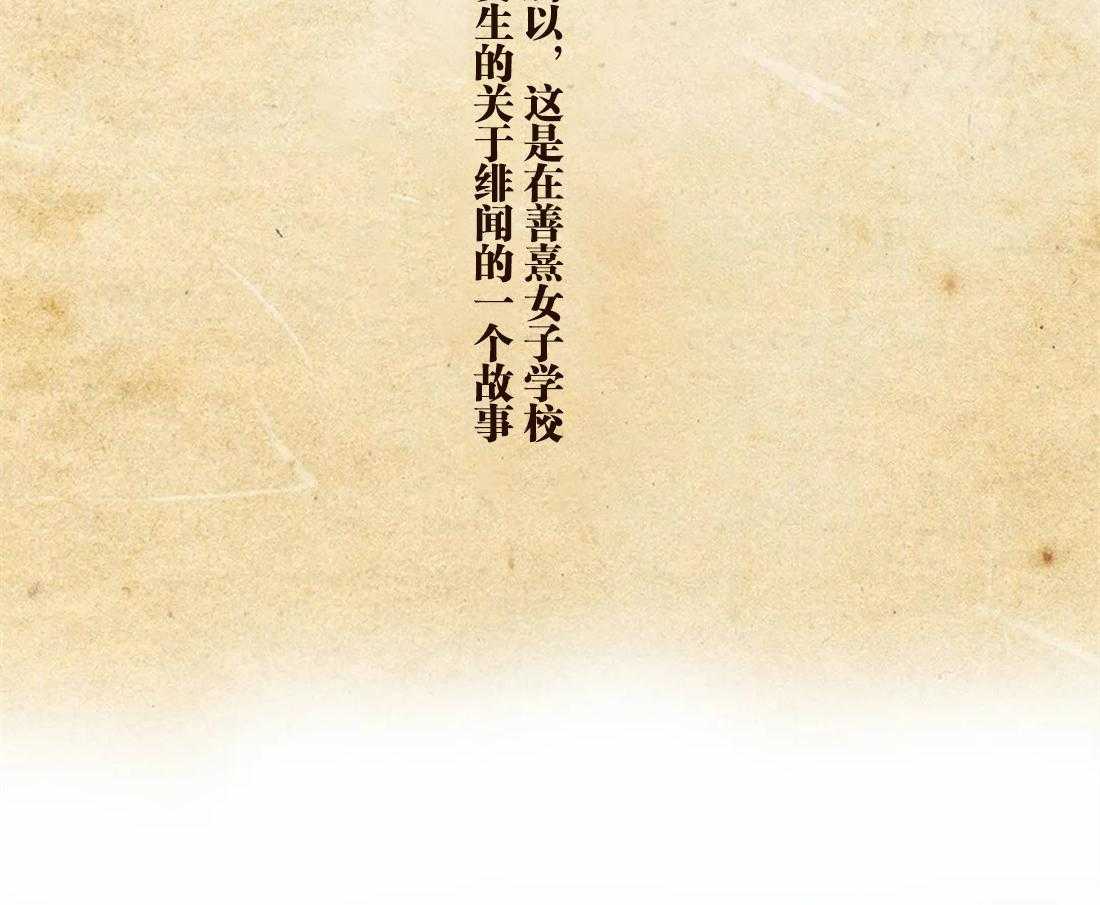 所以，这是在善熹女子学校
发生的关于绯闻的一个故事